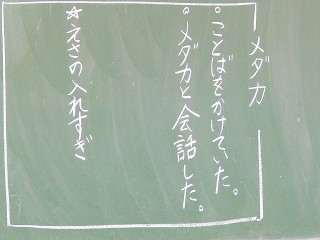 メダカ
。ことばをかけていた。
。メダカと会話した。
☆えさの入れすぎ